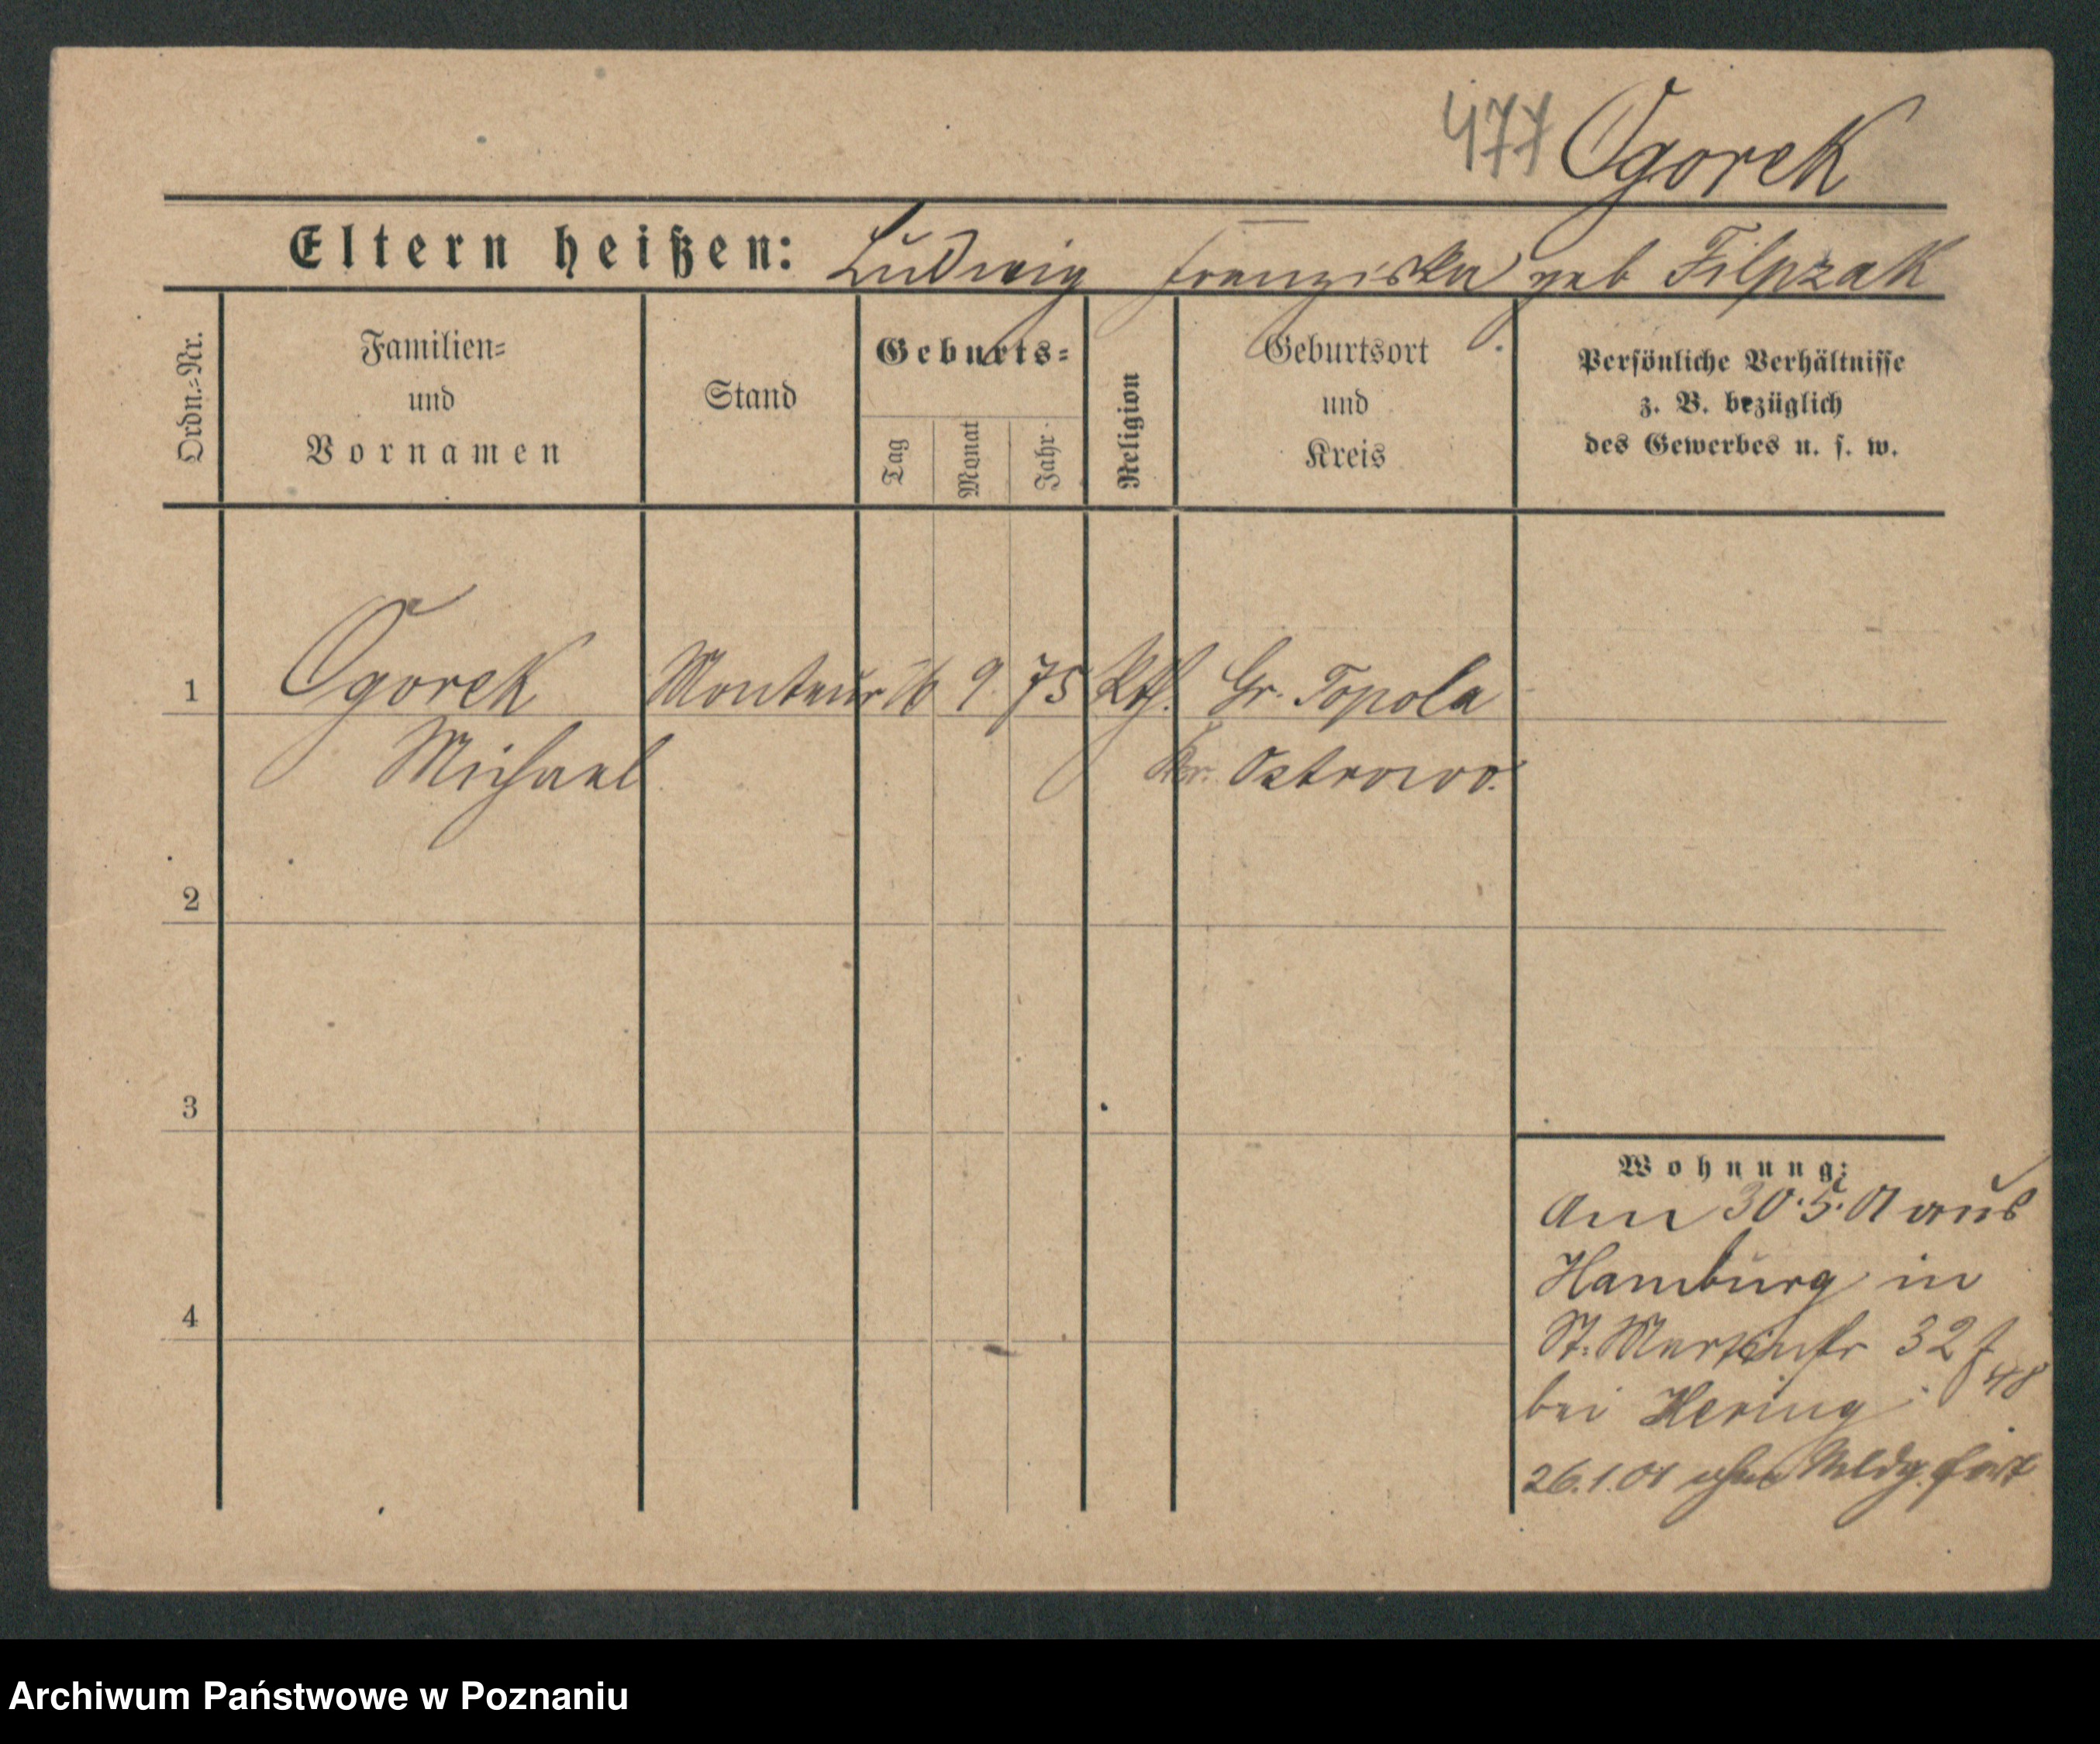 477 Ogorek
Eltern heißen: Ludwig Franziska geb Filpzak
Ordn.-Nr.
Familien-
und
Vornamen
Stand
Geburts-
Tag
Monat
Jahr
Religion
Geburtsort
und
Kreis
Persönliche Verhältnisse
z. B. bezüglich
des Gewerbes u. s. w.
1 Ogorek Monteur 16 9. 75 Kth. Gr. Topola
Michael Kr. Ostrowo.
2
3
4
Wohnung:
Am 30.5.01 aus
Hamburg in
St. Martinstr 32
bei Hering
26.1.01 ohne Meldg. fort
Archiwum Państwowe w Poznaniu